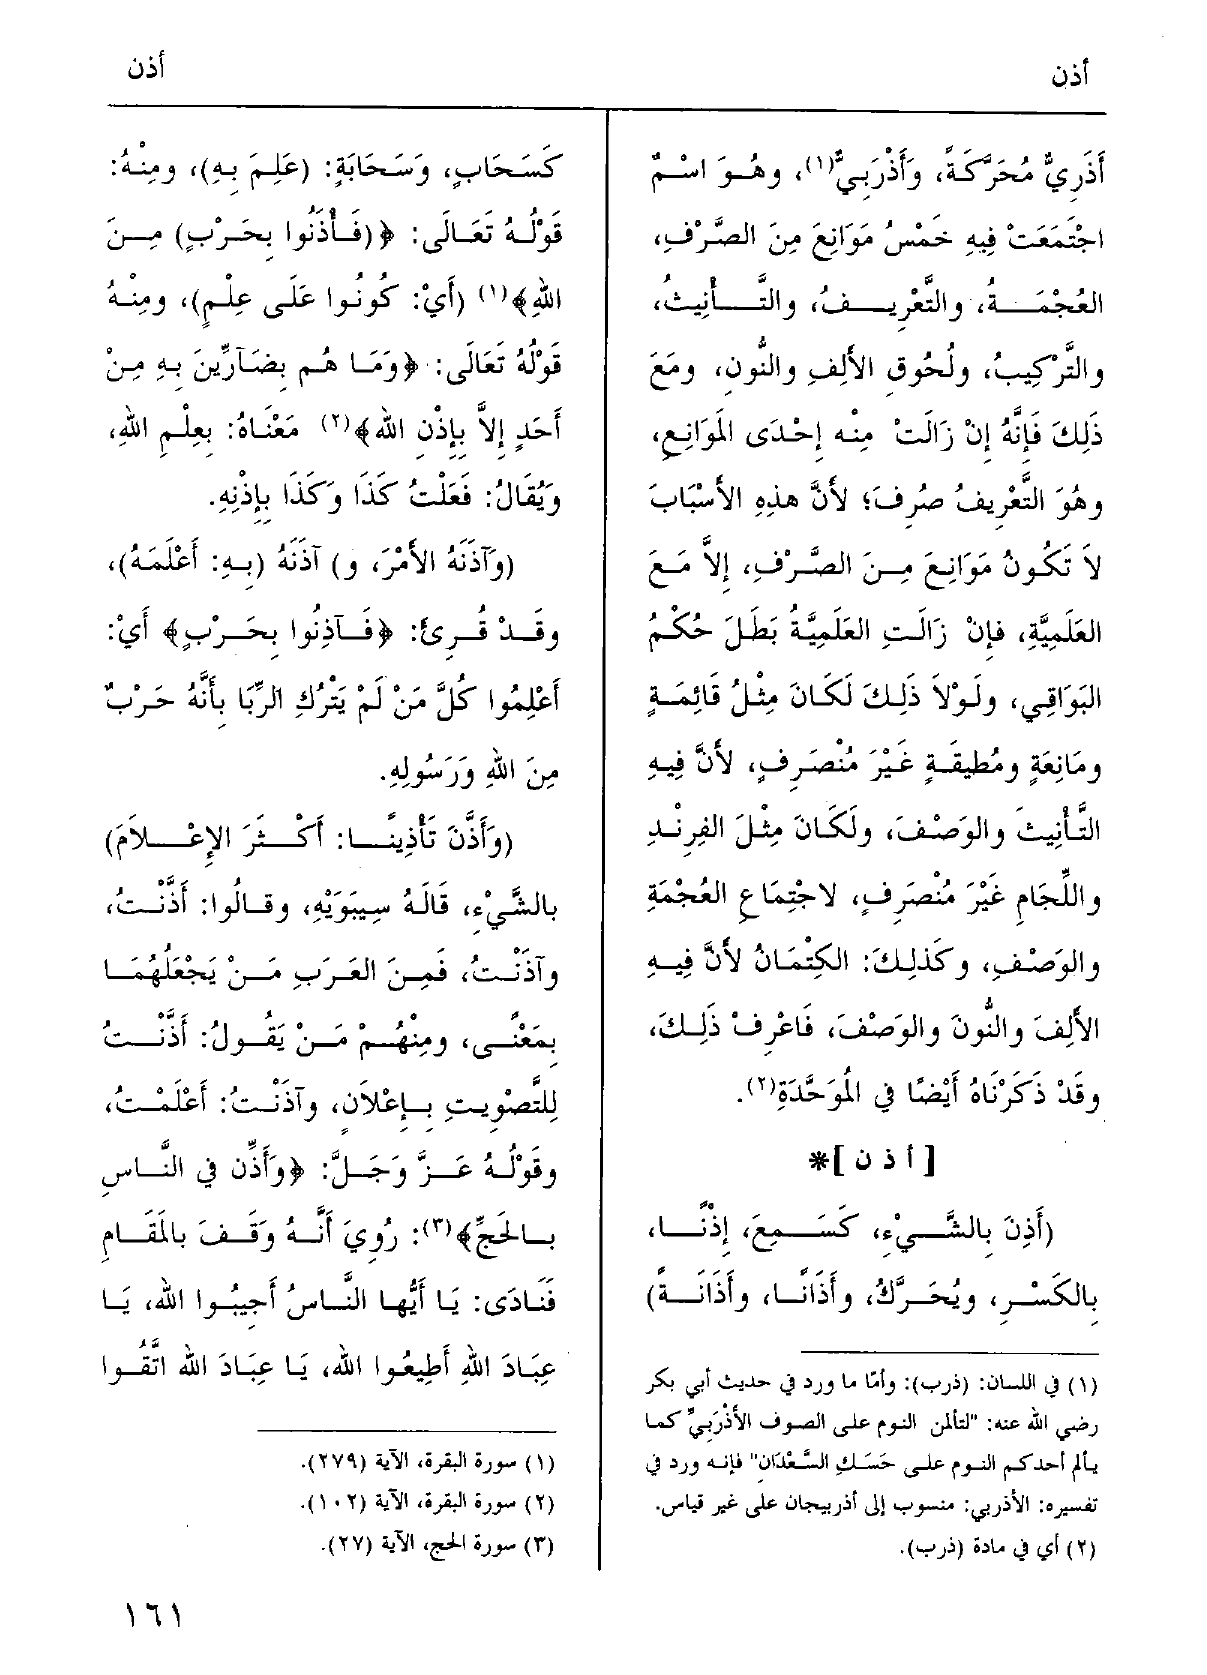 أذن
أذن
أَذَرِيٌّ مُحَرَّكَةً، وَأَذْرَبِيٌّ(١)، وهُوَ اسْمٌ
اجْتَمَعَتْ فِيهِ خَمْسُ مَوَانِعَ مِنَ الصَّرْفِ،
العُجْمَةُ، والتَّعْرِيفُ، والتَّأنِيثُ،
والتَّرْكِيبُ، ولُحُوق الألِفِ والنُّونِ، ومَعَ
ذَلِكَ فَإنَّهُ إنْ زَالَتْ مِنْه إحْدَى المَوَانِعِ،
وهُوَ التَّعْرِيفُ صُرِفَ؛ لأنَّ هذِهِ الأسْبَابَ
لاَ تَكُونُ مَوَانِعَ مِنَ الصَّرْفِ، إلاَّ مَعَ
العَلَمِيَّةِ، فإنْ زَالَتِ العَلَمِيَّةُ بَطَلَ حُكْمُ
البَوَاقِي، ولَوْلاَ ذَلِكَ لَكَانَ مِثْلُ قَائِمَةٍ
ومَانِعَةٍ ومُطِيقَةٍ غَيْرَ مُنْصَرِفٍ، لأنَّ فِيهِ
التَّأْنِيثَ والوَصْفَ، ولَكَانَ مِثْلَ الفِرِنْدِ
واللِّجَامِ غَيْرَ مُنْصَرِفٍ، لاجْتِمَاعِ العُجْمَةِ
والوَصْفِ، وكَذلِكَ: الكِتْمَانُ لأنَّ فِيهِ
الألِفَ والنُّونَ والوَصْفَ، فَاعْرِفْ ذَلِكَ،
وقَدْ ذَكَرْنَاهُ أيْضًا فِي المُوَحَّدَةِ(٢).
[ أ ذ ن ]*
(أَذِنَ بِالشَّيْءِ، كَسَمِعَ، إذْنًا،
بِالكَسْرِ، ويُحَرَّكُ، وأَذَانًا، وأَذَانَةً)
(١) في اللسان: (ذرب): وأمّا ما ورد في حديث أبي بكر
رضي الله عنه: "لتألمن النوم على الصوف الأَذْرَبِيِّ كما
يألم أحدكم النوم على حَسَكِ السَّعْدَانِ" فإنه ورد في
تفسيره: الأذربي: منسوب إلى أذربيجان على غير قياس.
(٢) أي في مادة (ذرب).
كَسَحَابٍ، وَسَحَابَةٍ: (عَلِمَ بِهِ)، ومِنْهُ:
قَوْلُهُ تَعَالَى: ﴿(فَأْذَنُوا بِحَرْبٍ) مِنَ
اللهِ﴾(١) (أَيْ: كُونُوا عَلَى عِلْمٍ)، ومِنْهُ
قَوْلُهُ تَعَالَى: ﴿وَمَا هُم بِضَارِّينَ بِهِ مِنْ
أَحَدٍ إلاَّ بِإِذْنِ الله﴾(٢) مَعْنَاهُ: بِعِلْمِ اللهِ،
وَيُقَالُ: فَعَلْتُ كَذَا وَكَذَا بِإِذْنِهِ.
(وَآذَنَهُ الأمْرَ، و) آذَنَهُ (بِهِ: أَعْلَمَهُ)،
وقَدْ قُرِئَ: ﴿فَآذِنُوا بِحَرْبٍ﴾ أَيْ:
أَعْلِمُوا كُلَّ مَنْ لَمْ يَتْرُكِ الرِّبَا بِأَنَّهُ حَرْبٌ
مِنَ اللهِ وَرَسُولِهِ.
(وَأَذَّنَ تَأْذِينًا: أَكْثَرَ الإِعْلاَمَ)
بِالشَّيْءِ، قَالَهُ سِيبَوَيْهِ، وقَالُوا: أَذَّنْتُ،
وآذَنْتُ، فَمِنَ العَرَبِ مَنْ يَجْعَلُهُمَا
بِمَعْنًى، ومِنْهُمْ مَنْ يَقُولُ: أَذَّنْتُ
لِلتَّصْوِيتِ بِإِعْلاَنٍ، وآذَنْتُ: أَعْلَمْتُ،
وقَوْلُهُ عَزَّ وَجَلَّ: ﴿وَأَذِّن فِي النَّاسِ
بِالحَجِّ﴾(٣): رُوِيَ أَنَّهُ وَقَفَ بِالْمَقَامِ
فَنَادَى: يَا أَيُّهَا النَّاسُ أَجِيبُوا اللهَ، يَا
عِبَادَ اللهِ أَطِيعُوا اللهَ، يَا عِبَادَ اللهِ اتَّقُوا
(١) سورة البقرة، الآية (٢٧٩).
(٢) سورة البقرة، الآية (١٠٢).
(٣) سورة الحج، الآية (٢٧).
١٦١